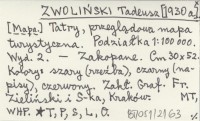 ZWOLIŃSKI Tadeusz [1930 a]
[Mapa.] Tatry, przeglądowa mapa
turystyczna. Podziałka 1:100.000.
Wyd. 2. — Zakopane. Cm 30x52.
Kolory: szary (rzeźba), czarny (na-
pisy), czerwony. Zakł. Graf. Fr.
Zieliński i S-ka, Kraków. MT,
WHP. *T, P, S, L, G